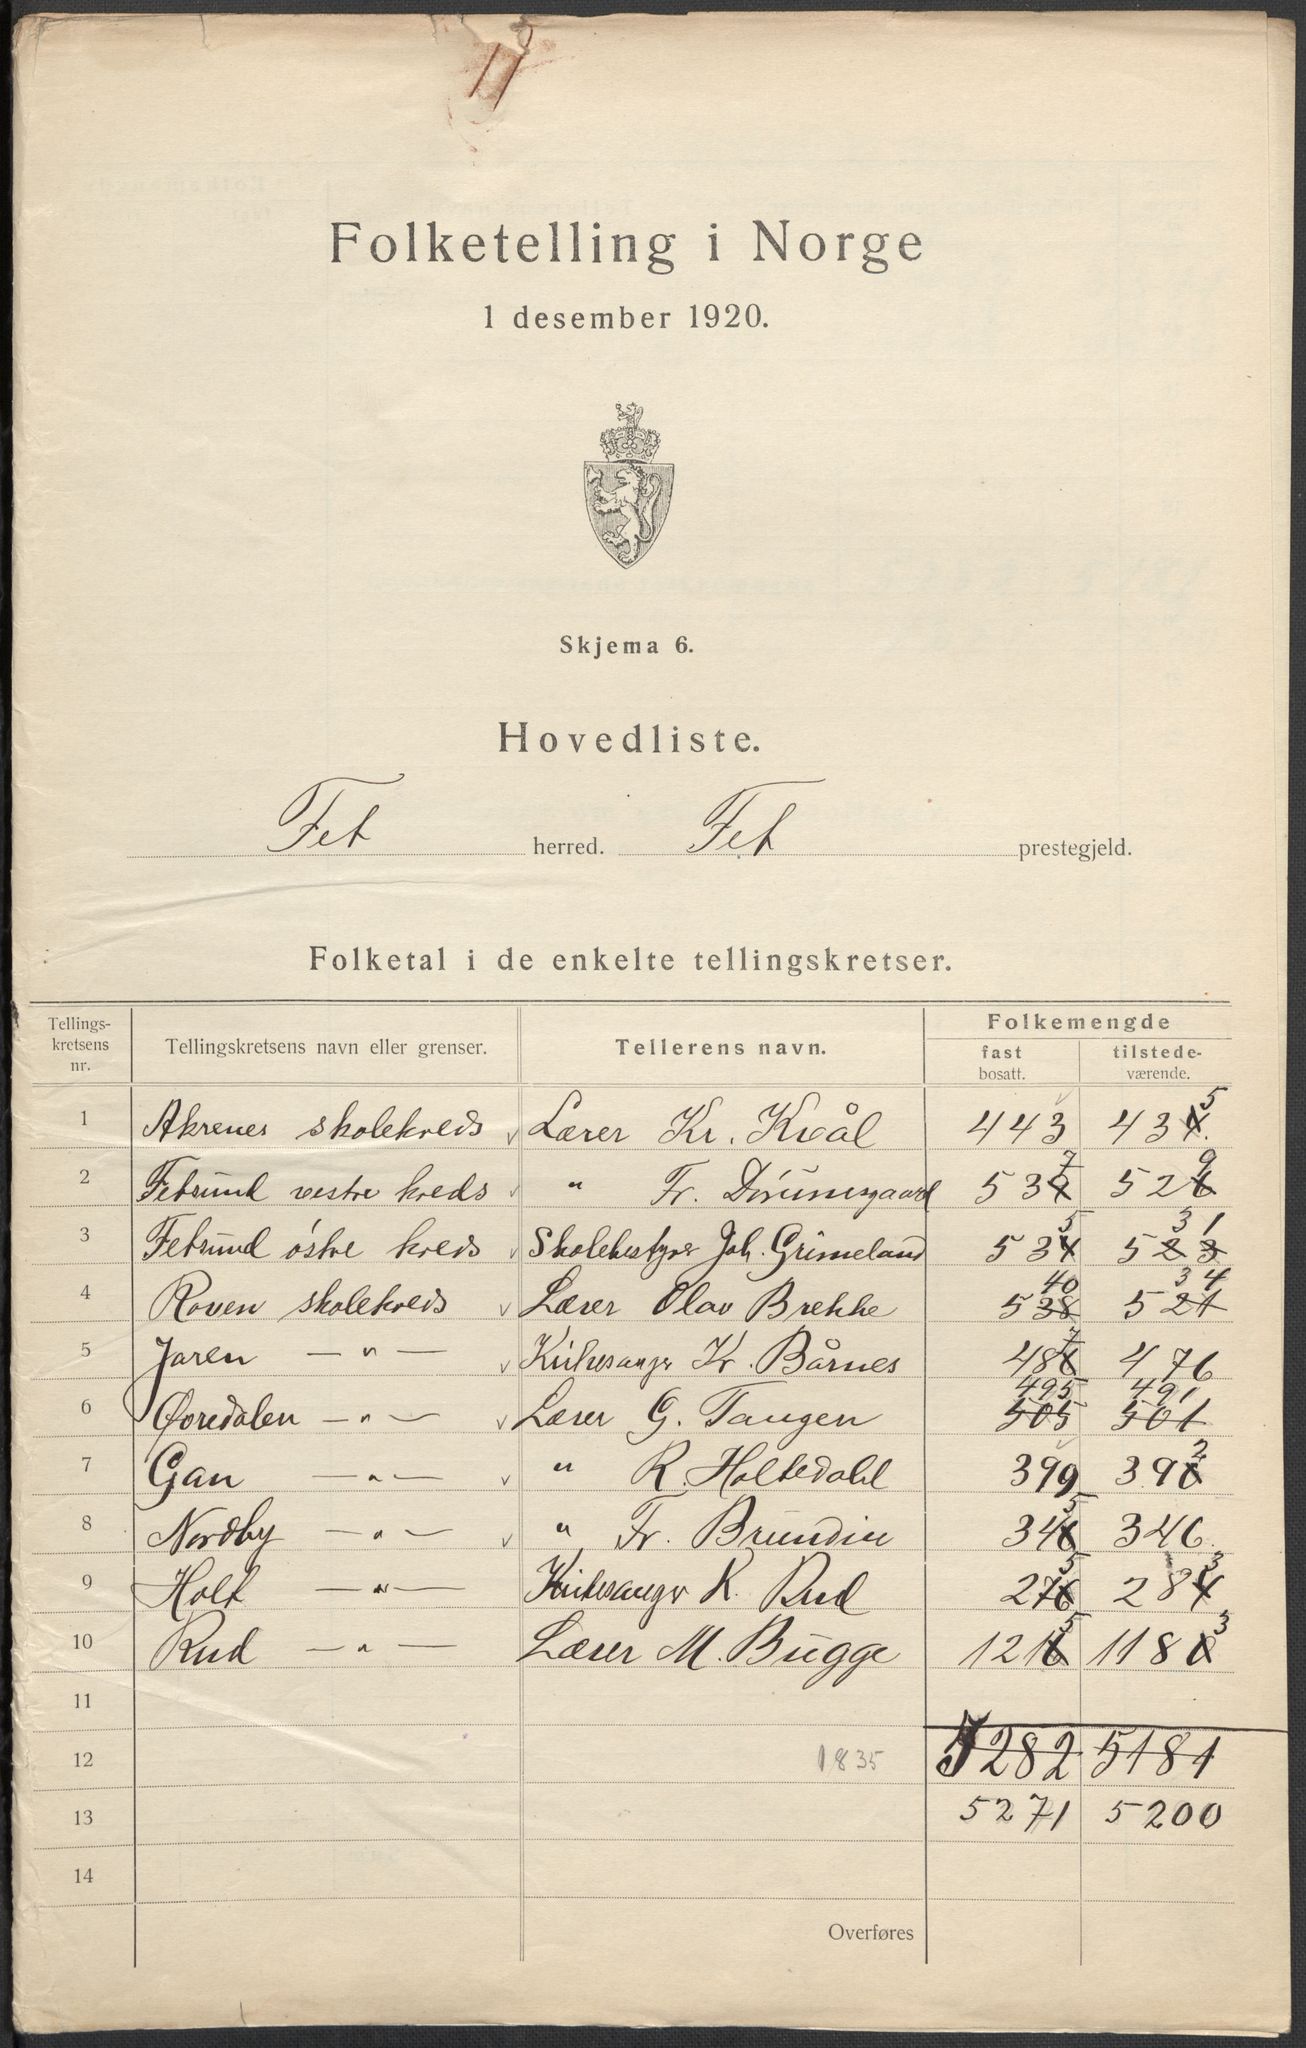 Folketelling i Norge
1 desember 1920.
Skjema 6.
Hovedliste.
Fet herred. Fet prestegjeld.
Folketal i de enkelte tellingskretser.
Tellings-kretsens nr. Tellingskretsens navn eller grenser. Tellerens navn. Folkemengde
fast bosatt. tilstede-værende.
1 Akrenes skolekreds v Lærer Kr. Kvål 443 435
2 Fetsund vestre kreds v " Fr. Dørumsgaard 537 529
3 Fetsund østre kreds v Skolebestyrer Joh. Grimeland 535 531
4 Roven skolekreds v Lærer Olav Brekke 540 534
5 Jaren — " — v Kirkesanger Kr. Bårnes 487 476
6 Øvredalen — " — v Lærer G. Tangen 505 495 501 491
7 Gan — " — v " R. Holtedahl 399 392
8 Nordby — " — v " Fr. Brundin 345 346
9 Holt — " — Kirkesanger K. Rud 275 283
10 Rud — " — Lærer M. Bugge 1215 1183
11
12 1835 5282 5181
13 5271 5200
14
Overføres